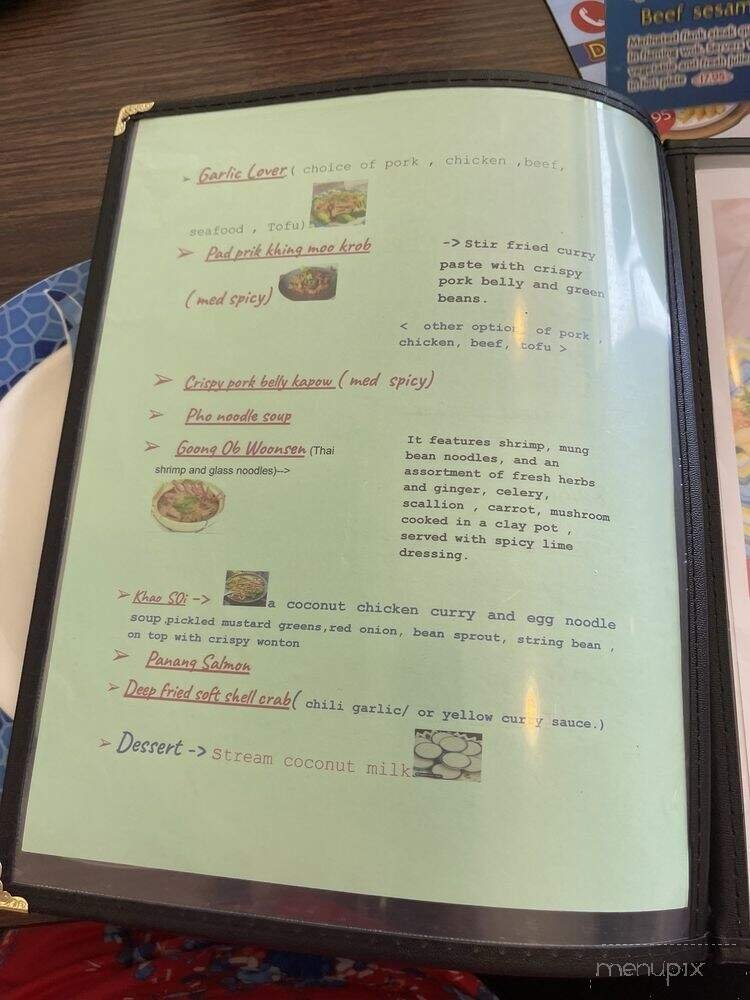 Beef sesam
Marinated flank steak
in flaming wok. Served
vegetable and fresh
in hot plate 17.95
95
➤ Garlic Lover ( choice of pork , chicken ,beef,
seafood , Tofu)
➤ Pad prik khing moo krob
(med spicy)
-> Stir fried curry
paste with crispy
pork belly and green
beans.
< other option of pork ,
chicken, beef, tofu >
➤ Crispy pork belly kapow ( med spicy)
➤ Pho noodle soup
➤ Goong Ob Woonsen (Thai
shrimp and glass noodles)-->
It features shrimp, mung
bean noodles, and an
assortment of fresh herbs
and ginger, celery,
scallion , carrot, mushroom
cooked in a clay pot ,
served with spicy lime
dressing.
➤ Khao SOi -> a coconut chicken curry and egg noodle
soup,pickled mustard greens,red onion, bean sprout, string bean ,
on top with crispy wonton
➤ Panang Salmon
➤ Deep fried soft shell crab( chili garlic/ or yellow curry sauce.)
➤ Dessert -> Stream coconut milk
menupix